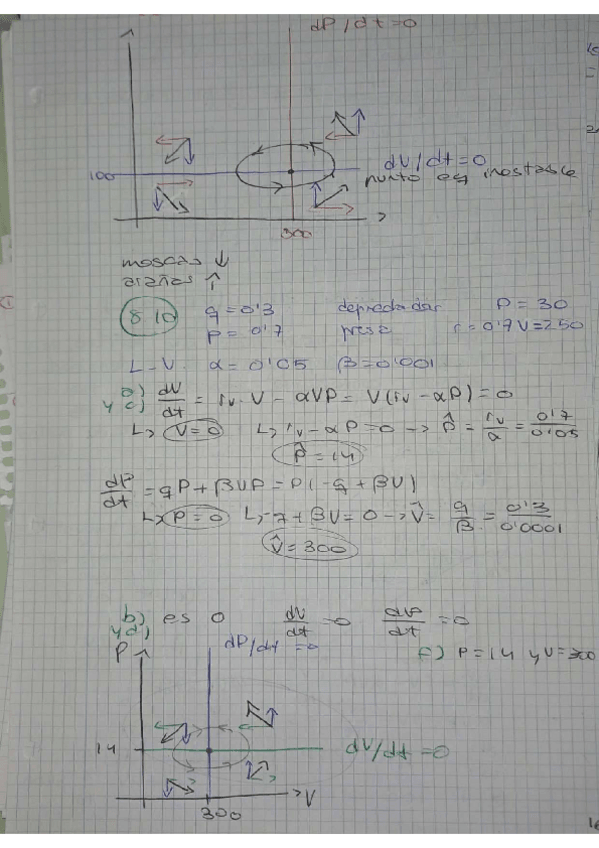 dP/dt=0
100
dV/dt=0
punto eq inestable
300
moscas ↓
arañas ↑
8.10 q=0'3 depredador P=30
p=0'7 presa r=0'7 V=250
L-V α=0'05 β=0'001
a)
y c) dV/dt = rv·V - αVP = V(rv - αP) = 0
↳ V=0 ↳ rv - αP = 0 → P̂ = rv/α = 0'7/0'05
P̂=14
dP/dt = qP + βVP = P(-q + βV)
↳ P=0 ↳ -q + βV = 0 → V̂ = q/β = 0'3/0'0001
V̂=300
b)
y d) es 0 dV/dt=0 dP/dt=0
P dP/dt=0 P=14 y V=300
14 dV/dt=0
V
300